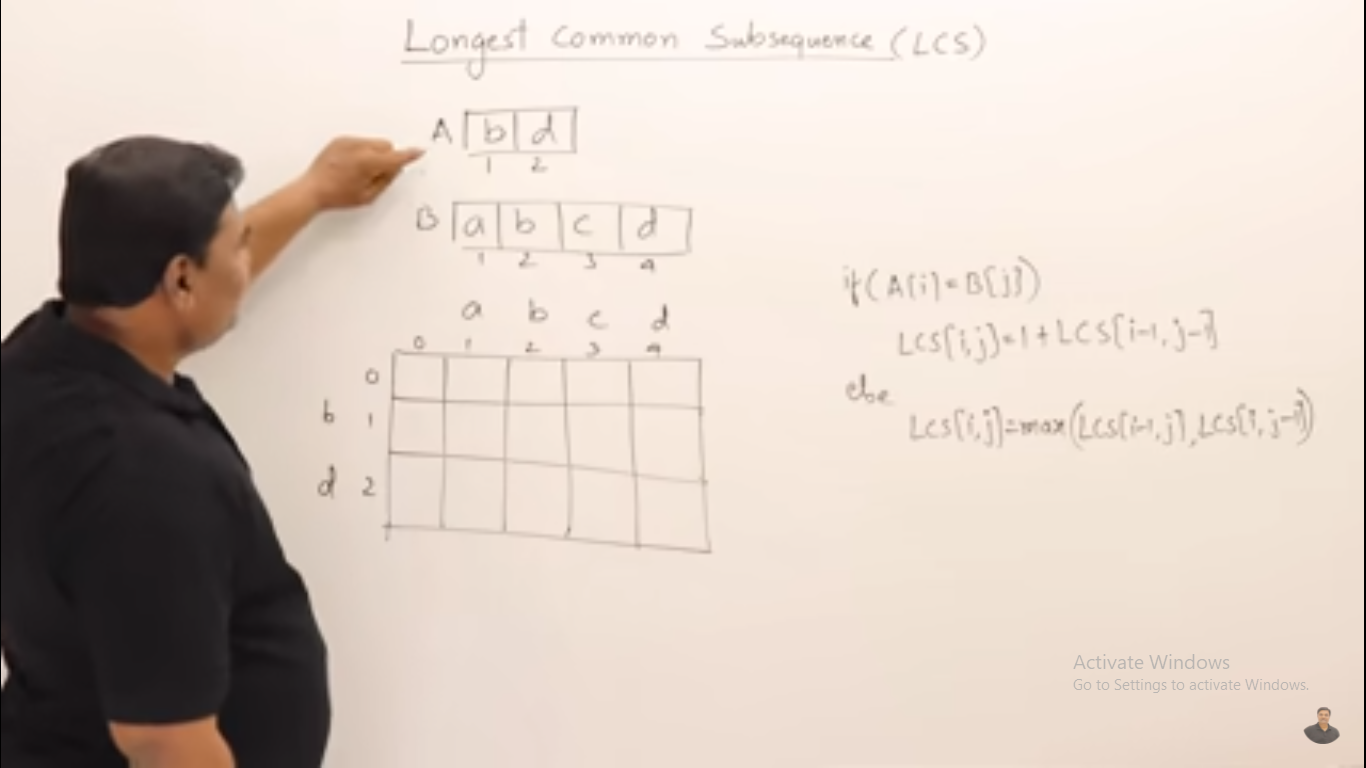 Longest Common Subsequence (LCS)
A b d
1 2
B a b c d
1 2 3 4
a b c d
0 1 2 3 4
0
b 1
d 2
if (A[i] = B[j])
LCS[i,j] = 1 + LCS[i-1, j-1]
else
LCS[i,j] = max(LCS[i-1,j], LCS[i, j-1])
Activate Windows
Go to Settings to activate Windows.